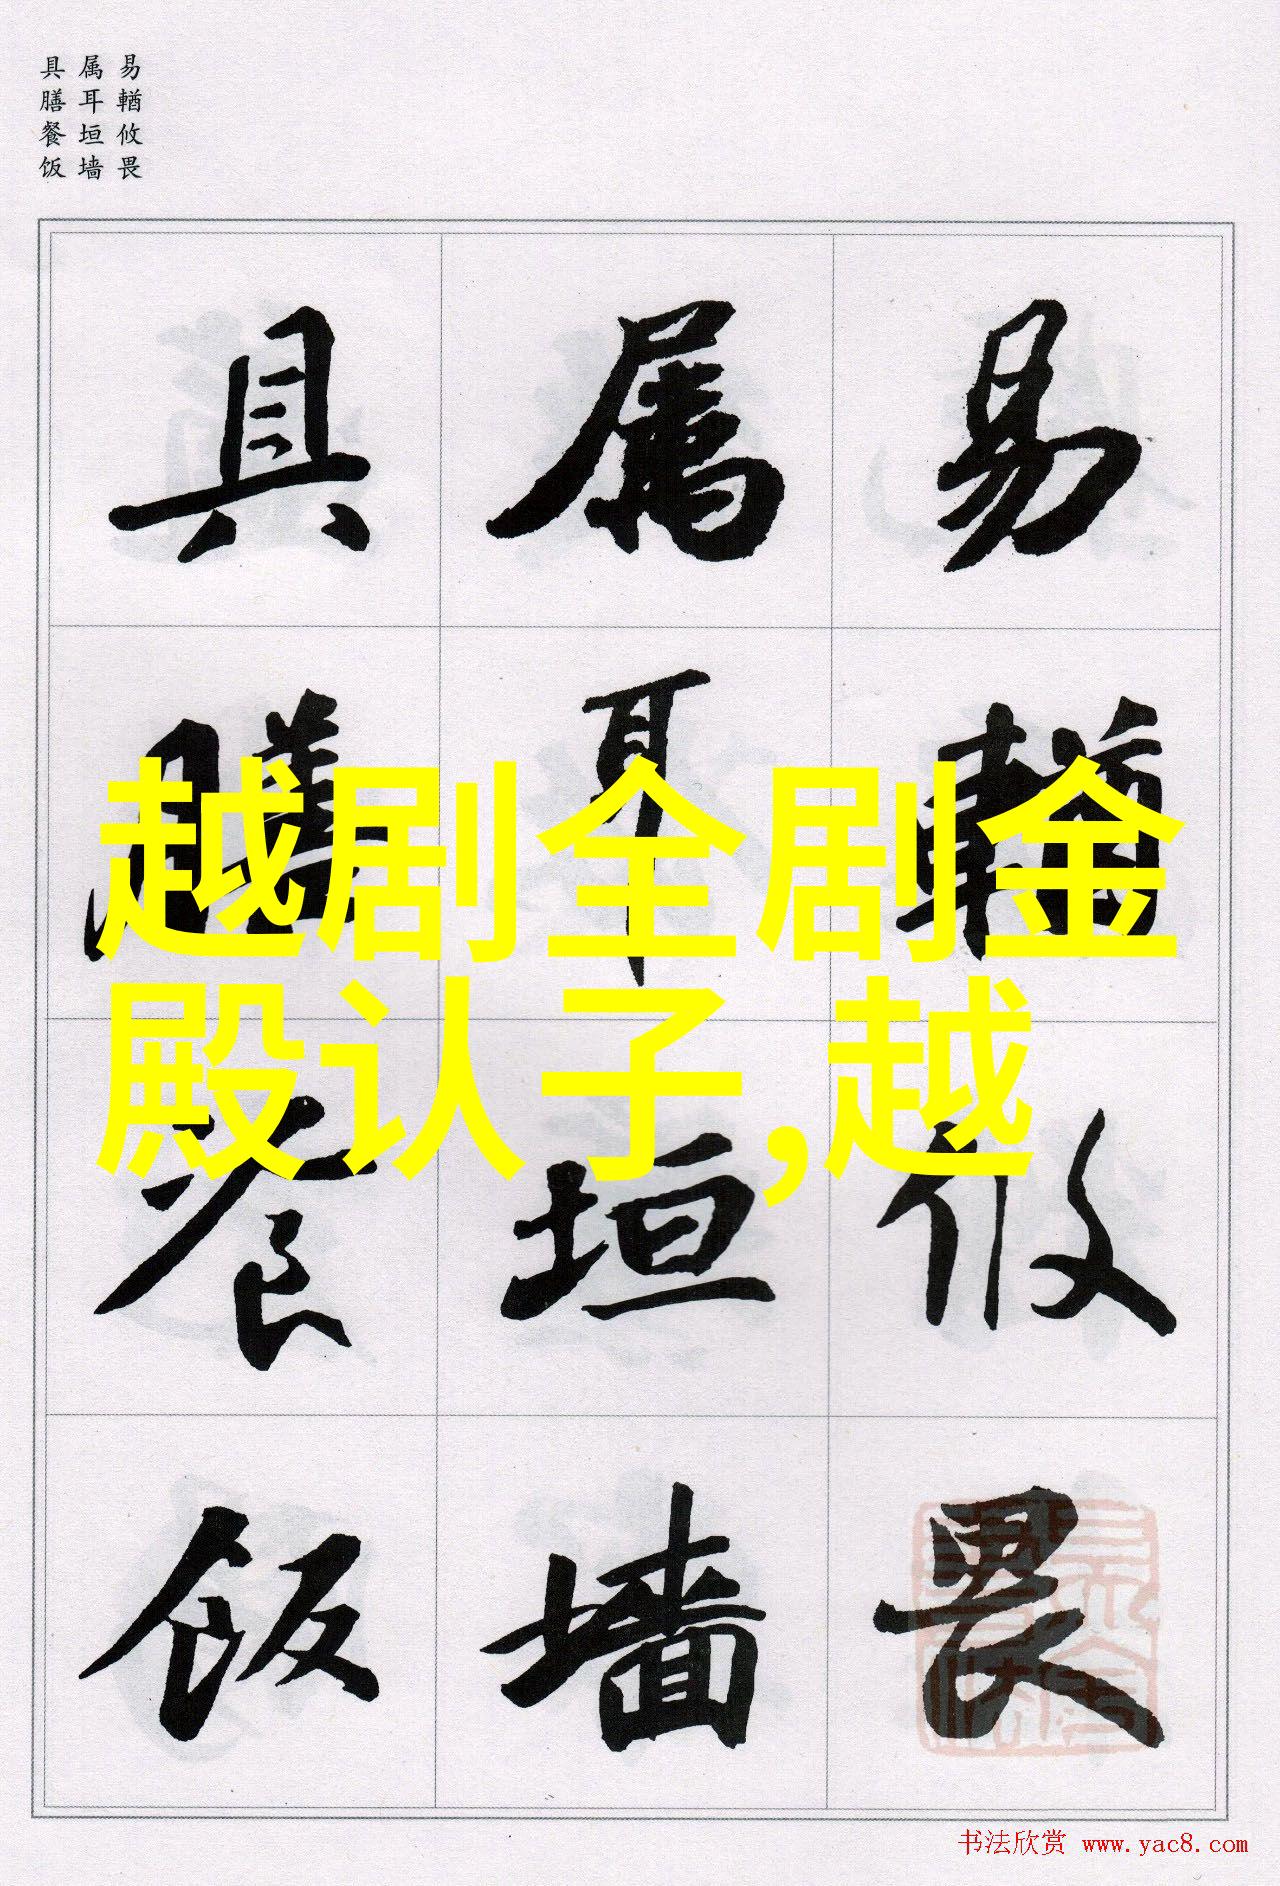 易輶攸畏
属耳垣墙
具膳餐饭
易輶攸畏
属耳垣墙
具膳飡饭
越剧全剧金
殿认子,越
书法欣赏 www.yac8.com